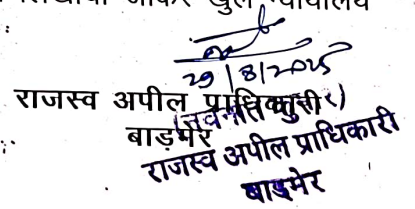 खुले न्यायालय
29/8/2025
राजस्व अपील प्राधिकारी
बाड़मेर
राजस्व अपील प्राधिकारी
बाड़मेर